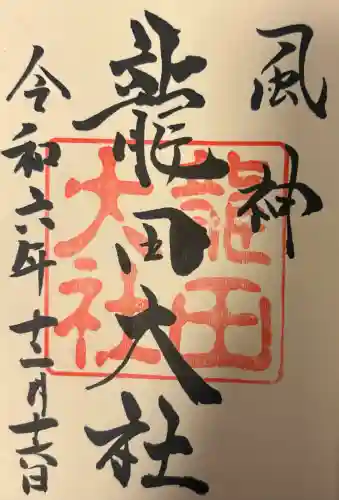 風神
龍田大社
龍田大社
令和六年十二月十六日